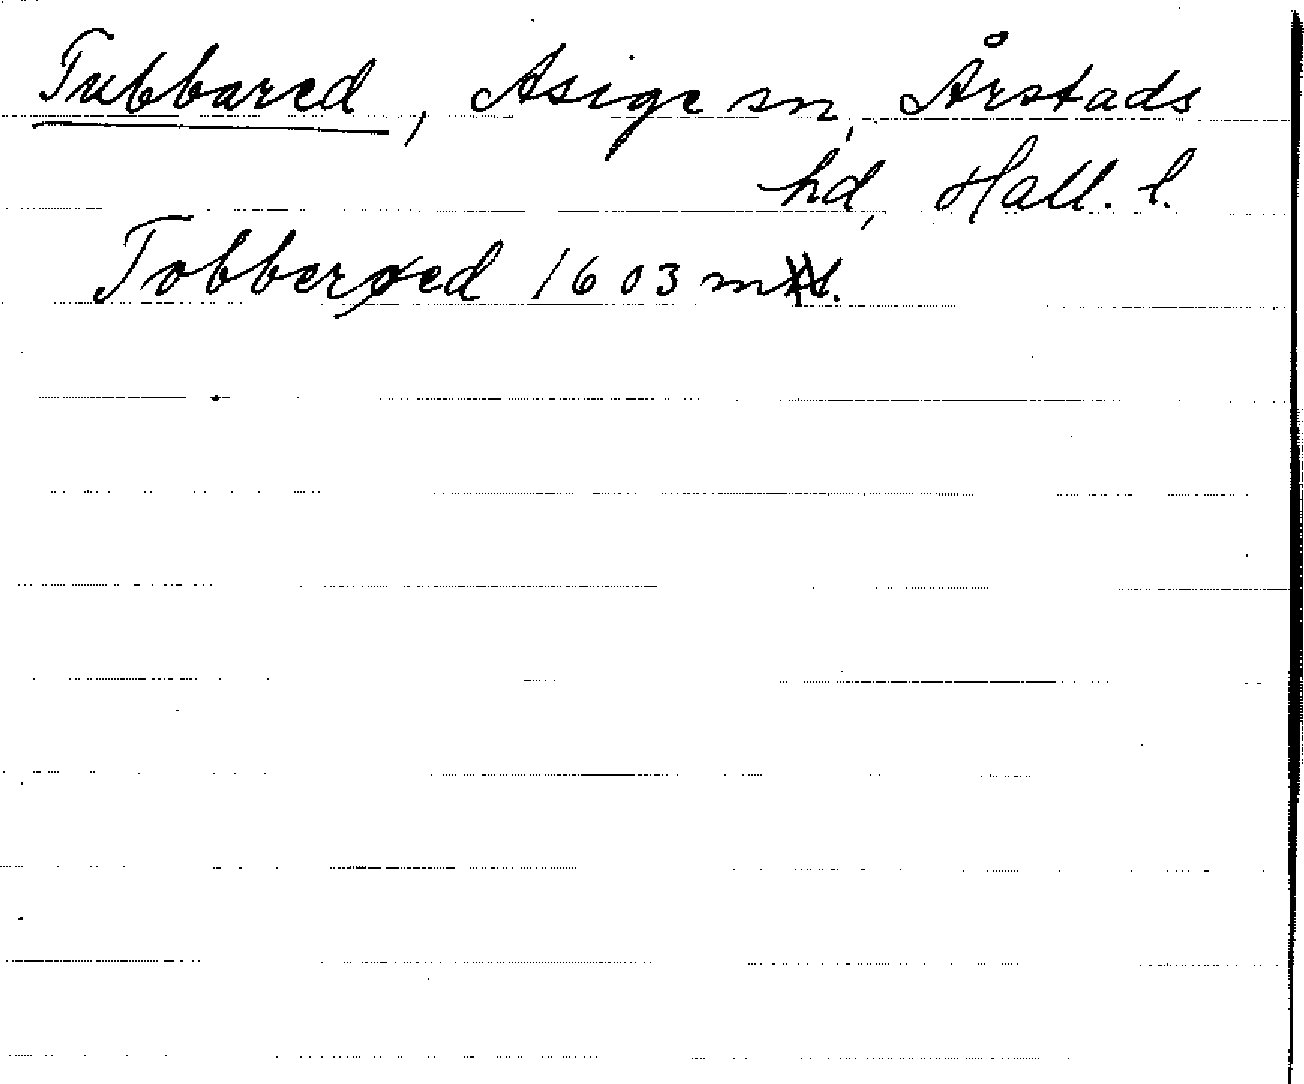 Tubbared, Asige sn, Årstads
hd, Hall. l.
Tobberøed 1603